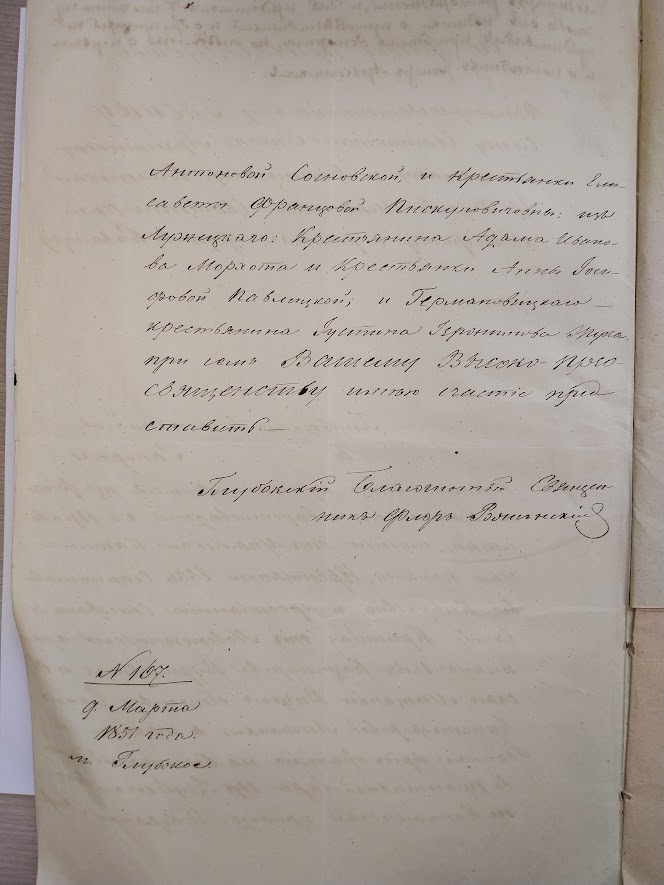 Антоновой Сосновской, и Крестьянки Ели-
саветы Францовой Пискуновичовны; изъ
Лужецкаго: Крестьянина Адама Ивано-
ва Морхота и Крестьянки Анны Іоси-
фовой Павлицкой; и Германовицкаго
крестьянина Іустина Іеронимова
при семъ Вашему Высоко-прео-
священству имѣю счастіе пред-
ставить.—
Глубокскій Благочинный Священ-
никъ Флоръ
N 167.
9. Марта
1851 года.
м. Глубокое.